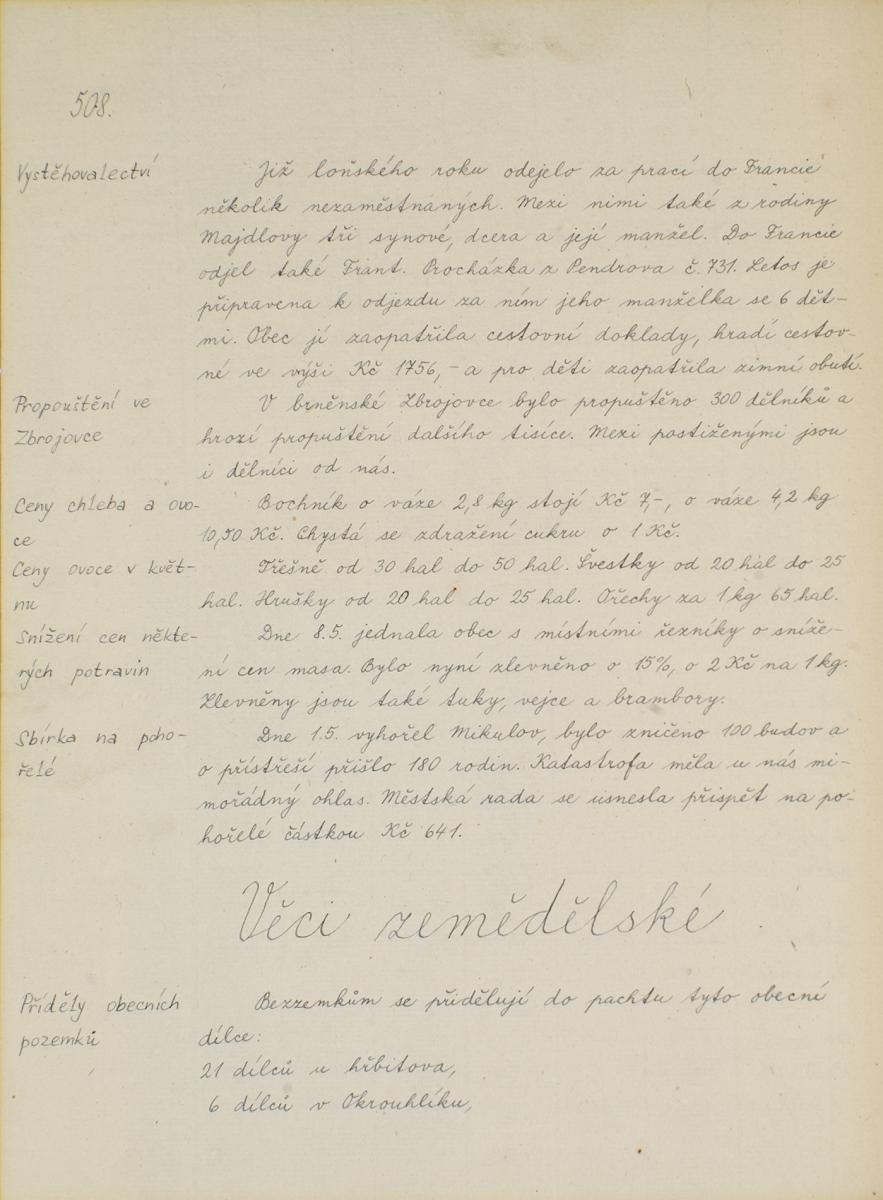 508.
Vystěhovalectví
Již loňského roku odejelo za prací do Francie
několik nezaměstnaných. Mezi nimi také z rodiny
Majdlovy tři synové, dcera a její manžel. Do Francie
odjel také Frant. Procházka z Pendrova č. 731. Letos je
připravena k odjezdu za ním jeho manželka se 6 dět-
mi. Obec jí zaopatřila cestovní doklady, hradí cestov-
né ve výši Kč 1756,- a pro děti zaopatřila zimní obutí.
Propouštění ve
Zbrojovce
V brněnské Zbrojovce bylo propuštěno 300 dělníků a
hrozí propuštění dalšího tisíce. Mezi postiženými jsou
i dělníci od nás.
Ceny chleba a ovo-
ce
Bochník o váze 2,8 kg stojí Kč 7,-, o váze 4,2 kg
10,50 Kč. Chystá se zdražení cukru o 1 Kč.
Ceny ovoce v květ-
nu
Třešně od 30 hal do 50 hal. Švestky od 20 hal do 25
hal. Hrušky od 20 hal do 25 hal. Ořechy za 1 kg 65 hal.
Snížení cen někte-
rých potravin
Dne 8.5. jednala obec s místními řezníky o sníže-
ní cen masa. Bylo nyní zlevněno o 15%, o 2 Kč na 1 kg.
Zlevněny jsou také tuky, vejce a brambory.
Sbírka na poho-
řelé
Dne 1.5. vyhořel Mikulov, bylo zničeno 100 budov a
o přístřeší přišlo 180 rodin. Katastrofa měla u nás mi-
mořádný ohlas. Městská rada se usnesla přispět na po-
hořelé částkou Kč 641.
Věci zemědělské
Příděly obecních
pozemků
Bezzemkům se přidělují do pachtu tyto obecní
dílce:
21 dílců u hřbitova,
6 dílců v Okrouhlíku,